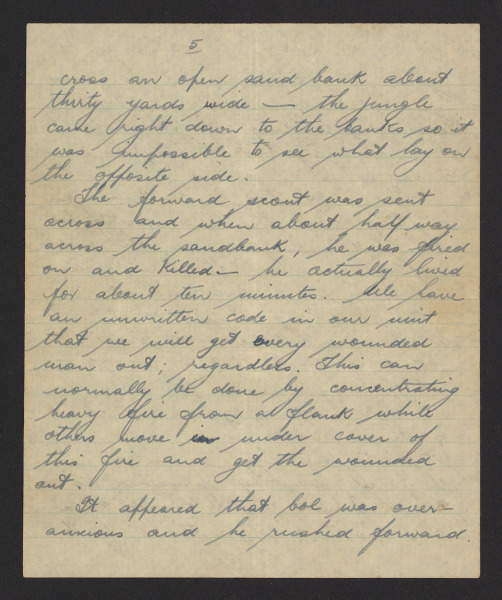 5
cross an open sand bank about
thirty yards wide — the jungle
came right down to the banks so it
was impossible to see what lay on
the opposite side.
The forward scout was sent
across and when about half way
across the sandbank, he was fired
on and killed — he actually lived
for about ten minutes. We have
an unwritten code in our unit
that we will get every wounded
man out; regardless. This can
normally be done by concentrating
heavy fire from a flank while
others move in under cover of
this fire and get the wounded
out.
It appeared that Col was over-
anxious and he rushed forward.